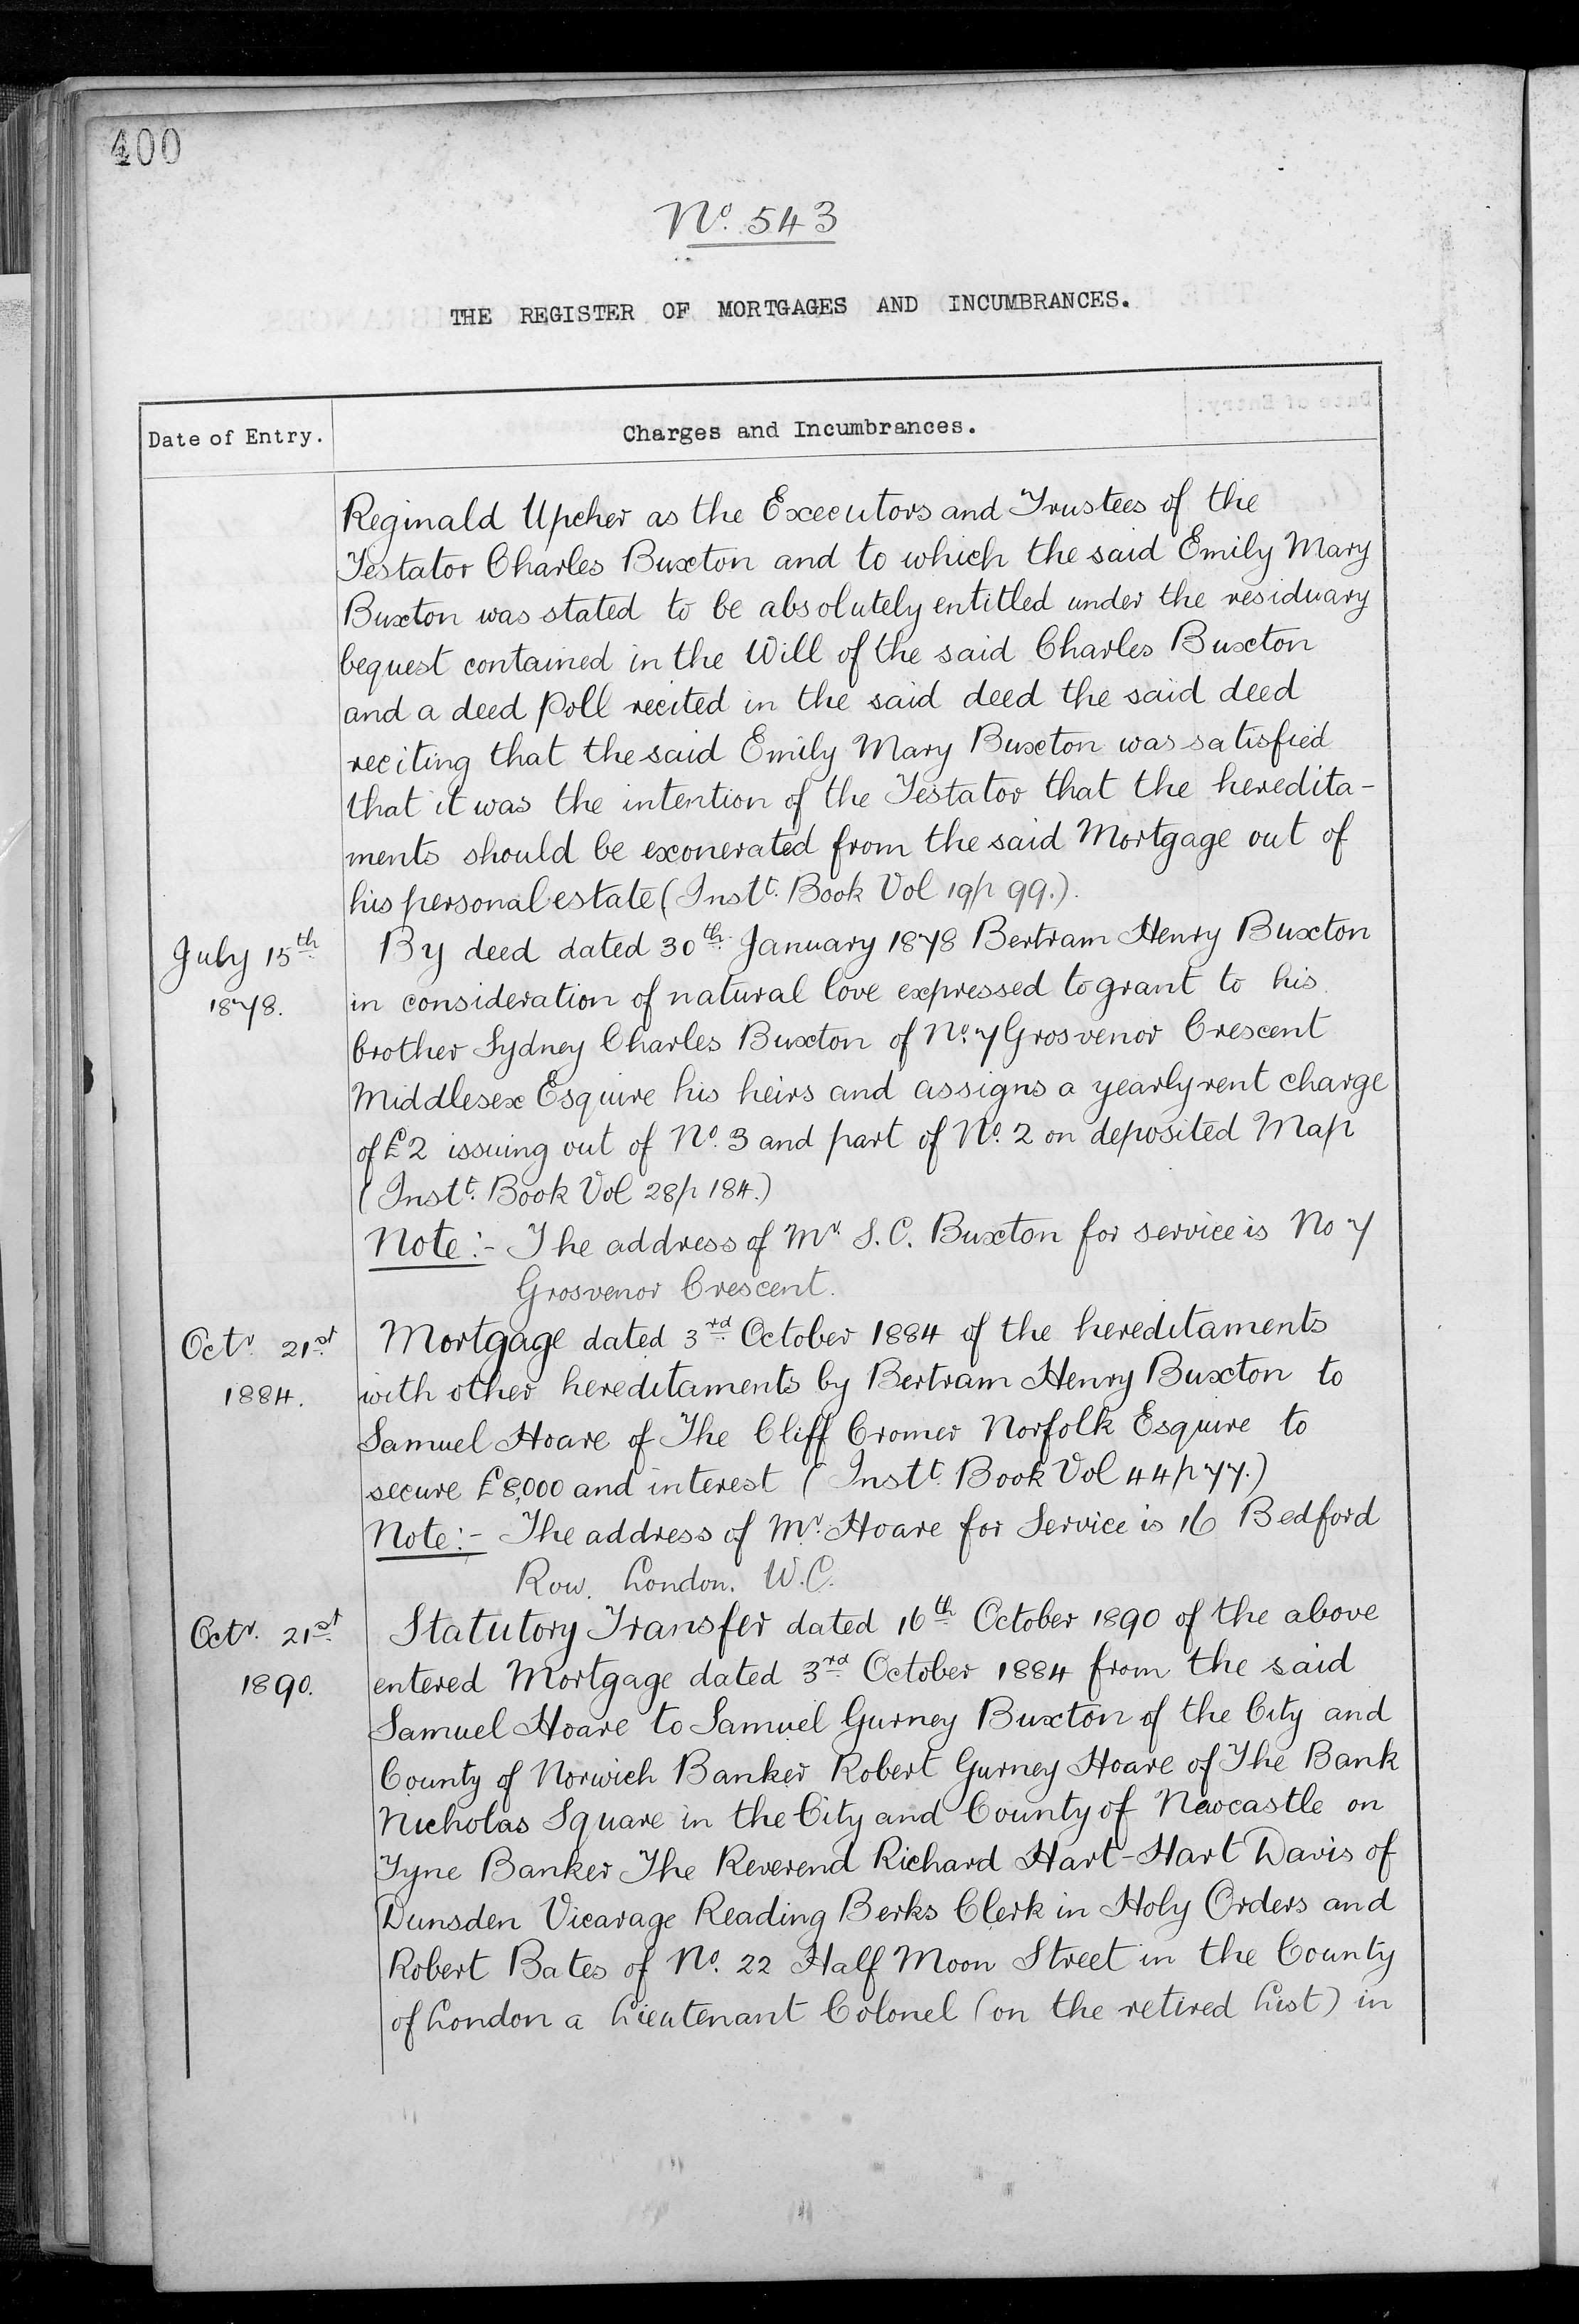 400
No. 543
THE REGISTER OF MORTGAGES AND INCUMBRANCES.
Date of Entry.
Charges and Incumbrances.
Reginald Upcher as the Executors and Trustees of the
Testator Charles Buxton and to which the said Emily Mary
Buxton was stated to be absolutely entitled under the residuary
bequest contained in the Will of the said Charles Buxton
and a deed poll recited in the said deed the said deed
reciting that the said Emily Mary Buxton was satisfied
that it was the intention of the Testator that the heredita-
ments should be exonerated from the said Mortgage out of
his personal estate (Instt. Book Vol 19 p 99.).
July 15th
1878.
By deed dated 30th January 1878 Bertram Henry Buxton
in consideration of natural love expressed to grant to his
brother Sydney Charles Buxton of No. 7 Grosvenor Crescent
Middlesex Esquire his heirs and assigns a yearly rent charge
of £2 issuing out of No. 3 and part of No. 2 on deposited Map
(Instt. Book Vol 28 p 184.)
Note:- The address of Mr. S. C. Buxton for service is No 7
Grosvenor Crescent.
Octr. 21st
1884.
Mortgage dated 3rd October 1884 of the hereditaments
with other hereditaments by Bertram Henry Buxton to
Samuel Hoare of The Cliff Cromer Norfolk Esquire to
secure £8,000 and interest (Instt. Book Vol 44 p 77.)
Note:- The address of Mr. Hoare for Service is 16 Bedford
Row. London. W.C.
Octr. 21st
1890.
Statutory Transfer dated 16th October 1890 of the above
entered Mortgage dated 3rd October 1884 from the said
Samuel Hoare to Samuel Gurney Buxton of the City and
County of Norwich Banker Robert Gurney Hoare of The Bank
Nicholas Square in the City and County of Newcastle on
Tyne Banker The Reverend Richard Hart-Hart Davis of
Dunsden Vicarage Reading Berks Clerk in Holy Orders and
Robert Bates of No. 22 Half Moon Street in the County
of London a Lieutenant Colonel (on the retired List) in